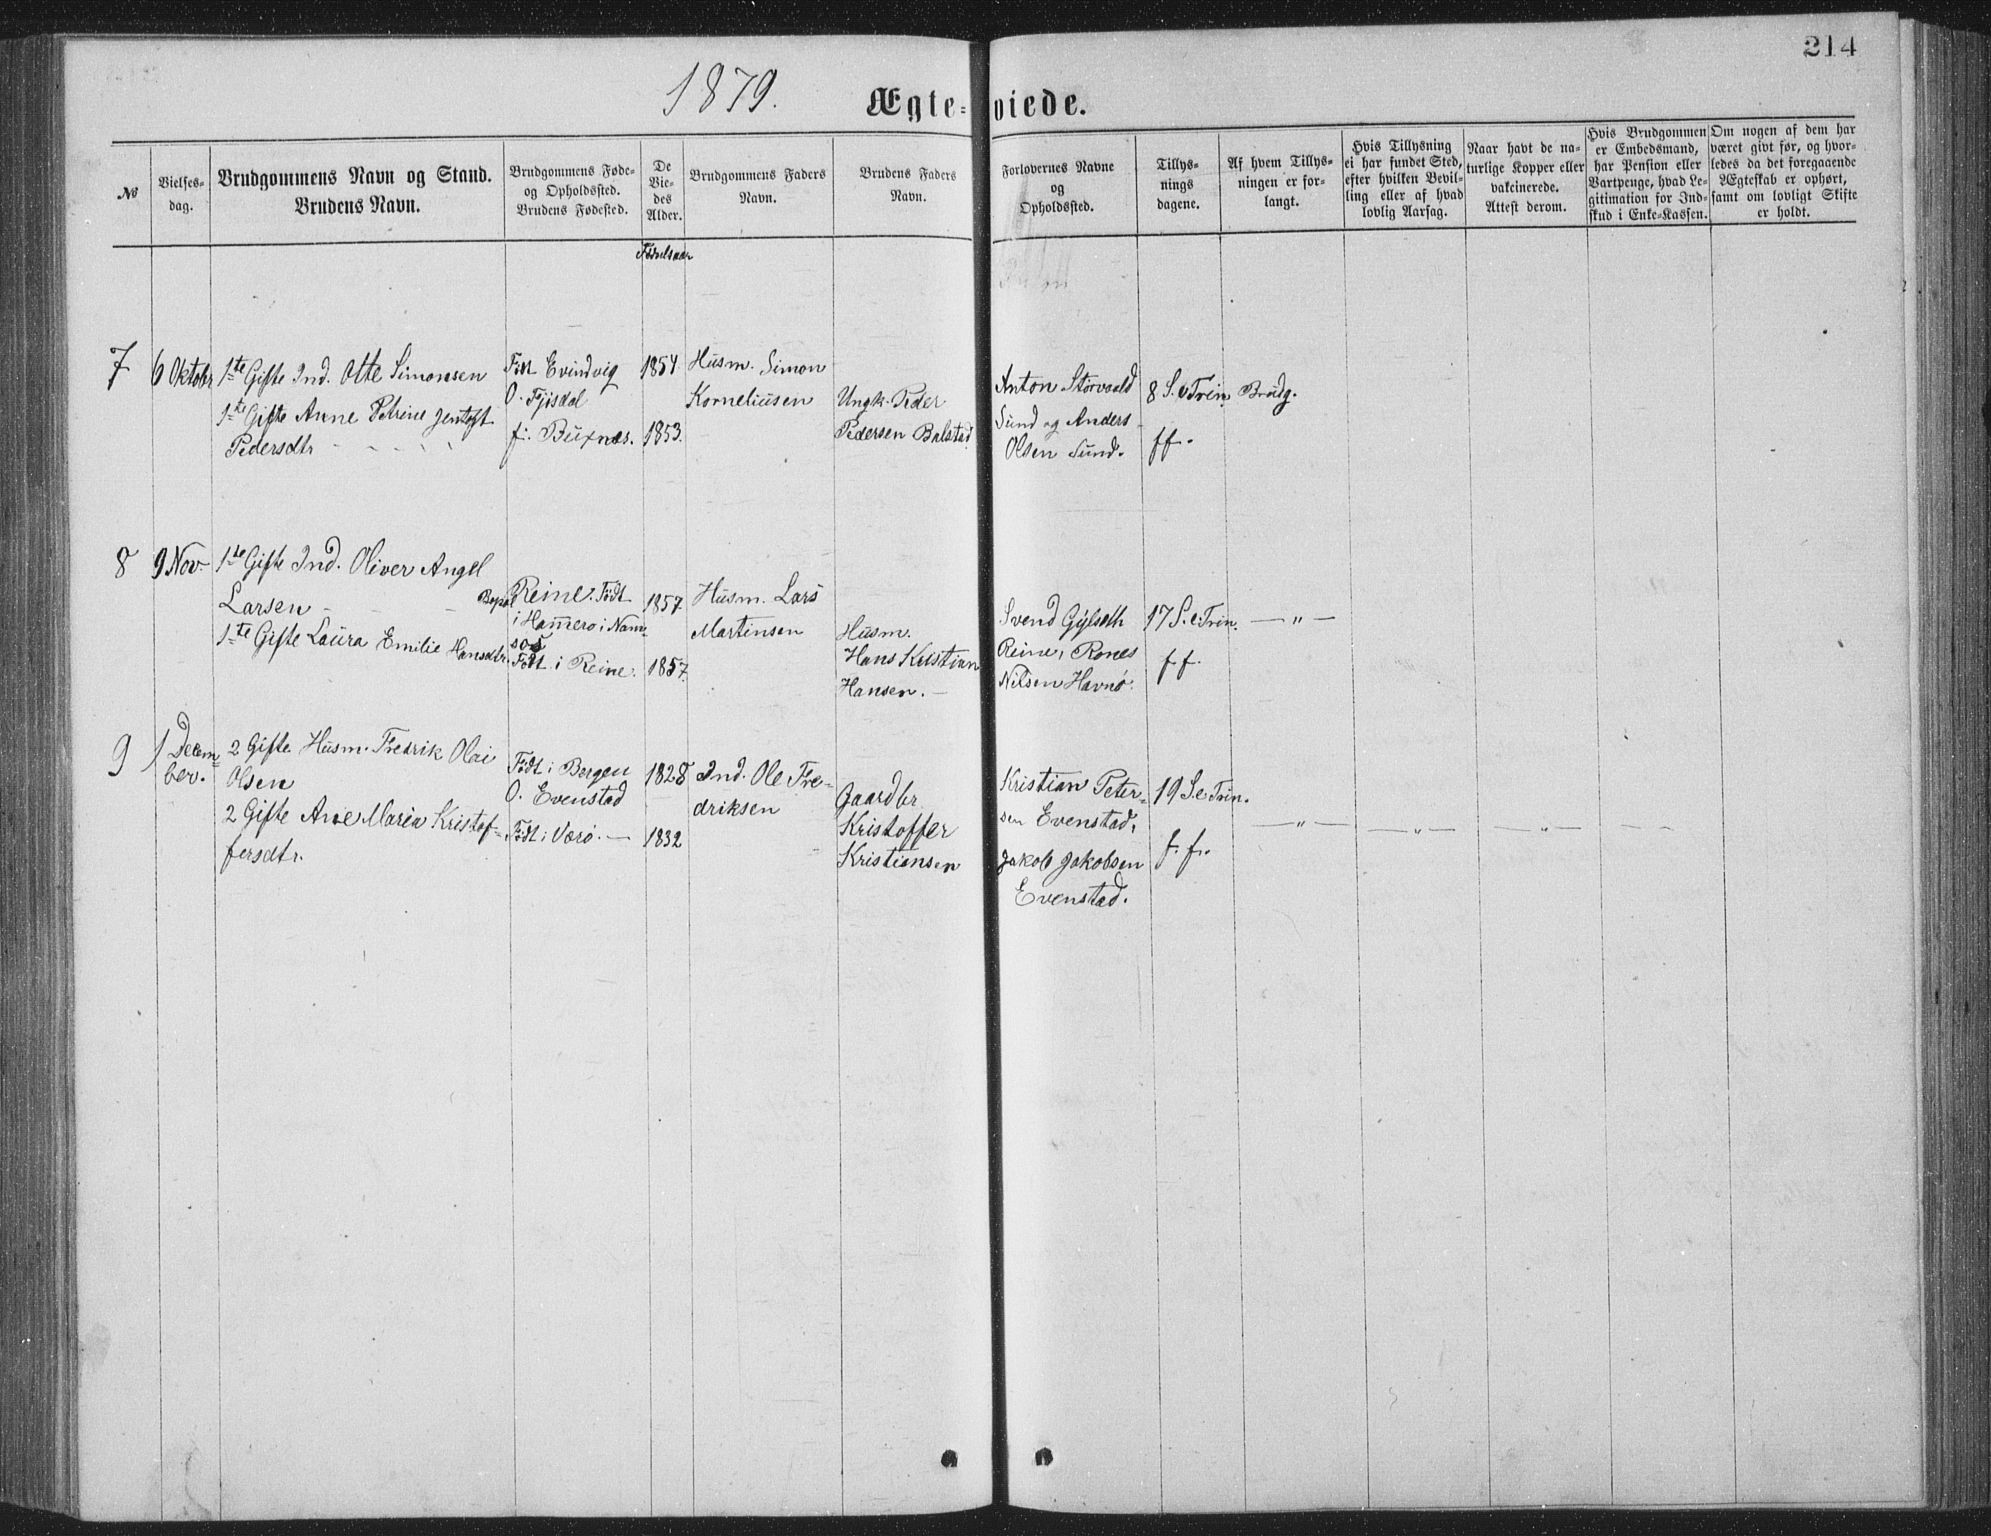 214
1879.
Ægte-viede.
No
Vielses-
dag.
Brudgommens Navn og Stand.
Brudens Navn.
Brudgommens Føde-
og Opholdssted.
Brudens Fødested.
De
Vie-
des
Alder.
Brudgommens Faders
Navn.
Brudens Faders
Navn.
Forlovernes Navne
og
Opholdssted.
Tillys-
nings
dagene.
Af hvem Tillys-
ningen er for-
langt.
Hvis Tillysning
ei har fundet Sted,
efter hvilken Bevil-
ling eller af hvad
lovlig Aarsag.
Naar havt de na-
turlige Kopper eller
vakcinerede.
Attest derom.
Hvis Brudgommen
er Embedsmand,
har Pension eller
Vartpenge, hvad Le-
gitimation for Ind-
skud i Enke-Kassen.
Om nogen af dem har
været givt før, og hvor-
ledes da det foregaaende
Ægteskab er ophørt,
samt om lovligt Skifte
er holdt.
Fødselsaar
7
6 Oktobr
1ste Gifte Ind. Otte Simonsen
1ste Gifte Anne Petrine Jentoft
Pedersdtr
Født Evindvig
O. Fjisdal
f. Buxnæs.
1854
1853.
Husm. Simon
Korneliusen
Ungk. Peder
Pedersen Balstad
Anton Storvaald
Sund og Anders
Olsen Sund.
8 S. e Trin
ff.
Brudg.
8
9 Nov.
1ste Gifte Ind. Oliver Angel
Larsen
1ste Gifte Laura Emilie Hansdtr.
Bopæl
Reine. Født
i Hammerø i Nam-
sos
Født i Reine.
1857
1857.
Husm. Lars
Martinsen
Husm.
Hans Kristian
Hansen.
Svend Gylseth
Reine, Rones
Nilsen Havnø.
17 S. e. Trin.
f. f.
— " —
9
1 Decem-
ber.
2 Gifte Husm. Fredrik Olai
Olsen
2 Gifte Ane Maria Kristof-
fersdtr.
Født i Bergen
O. Evenstad
Født i Værø. —
1828
1832
Ind. Ole Fre-
driksen
Gaardbr
Kristoffer
Kristiansen
Kristian Peter-
sen Evenstad,
Jakob Jakobsen
Evenstad.
19 S. e Trin.
f. f.
— " — — " — — " — — " —